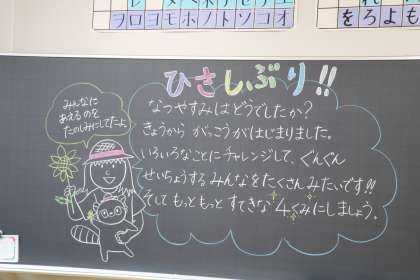 ヲロヨモホノトソコオ
をろよも
ひさしぶり!!
みんなに
あえるのを
たのしみにしてたよ
なつやすみはどうでしたか?
きょうから がっこうがはじまりました。
いろいろなことにチャレンジして、ぐんぐん
せいちょうするみんなをたくさんみたいです!!
そして もっともっと すてきな 4くみにしましょう。